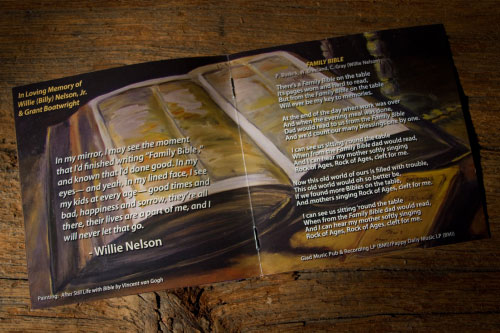 In Loving Memory of
Willie (Billy) Nelson, Jr.
& Grant Boatwright
In my mirror, I may see the moment
that I'd finished writing "Family Bible,"
and known that I'd done good. In my
eyes — and yeah, in my lined face, I see
my kids at every age — good times and
bad, happiness and sorrow, they're all
there, their lives are a part of me, and I
will never let that go.
–Willie Nelson
Painting: After Still Life with Bible by Vincent van Gogh
FAMILY BIBLE
C. Gray (Willie Nelson)
There's a Family Bible on the table
Its pages worn and hard to read,
But from the Family Bible on the table
Will ever be my key to memories.
At the end of the day when work was over
And when the evening meal was done,
Dad would read to us from the Family Bible
And we'd count our many blessings one by one.
I can see us sittin' 'round the table
When from the Family Bible dad would read,
And I can hear my mother softly singing
Rock of Ages, Rock of Ages, cleft for me.
Now this old world of ours is filled with trouble,
This old world would oh so better be
If we found more Bibles on the table,
And mothers singing Rock of Ages, cleft for me.
I can see us sittin' 'round the table
When from the Family Bible dad would read,
And I can hear my mother softly singing
Rock of Ages, Rock of Ages, cleft for me.
Glad Music Pub & Recording LP (BMI)/Pappy Daily Music LP (BMI)